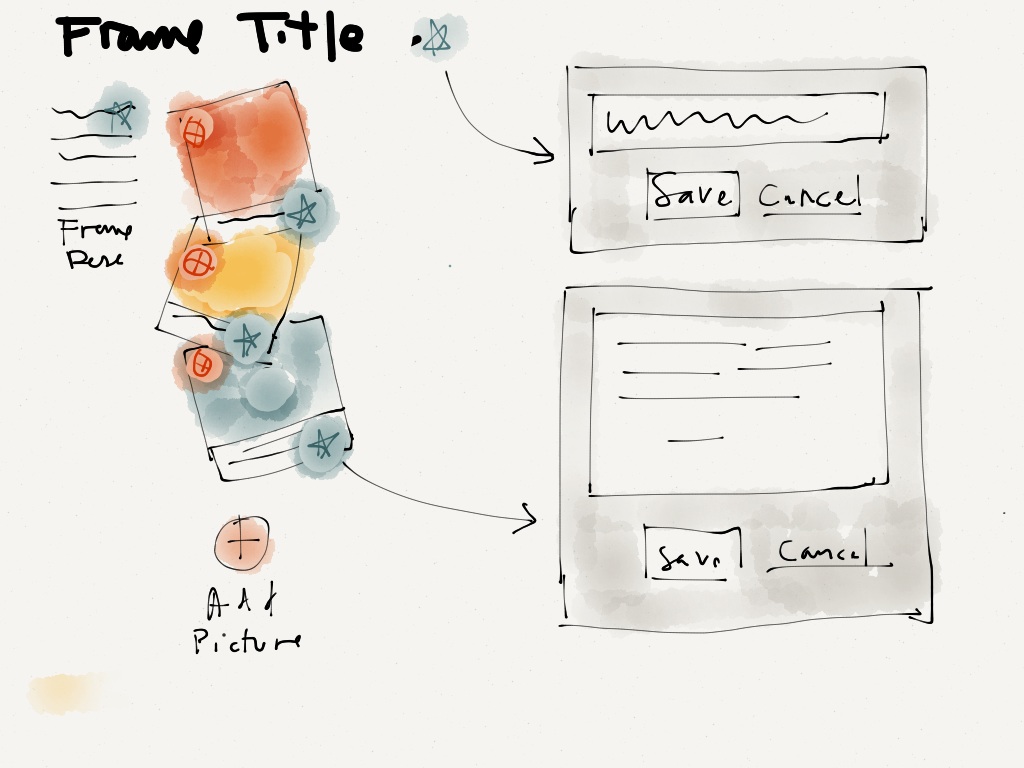 Frame Title
Frame
Desc
Save Cancel
Save Cancel
Add
Picture